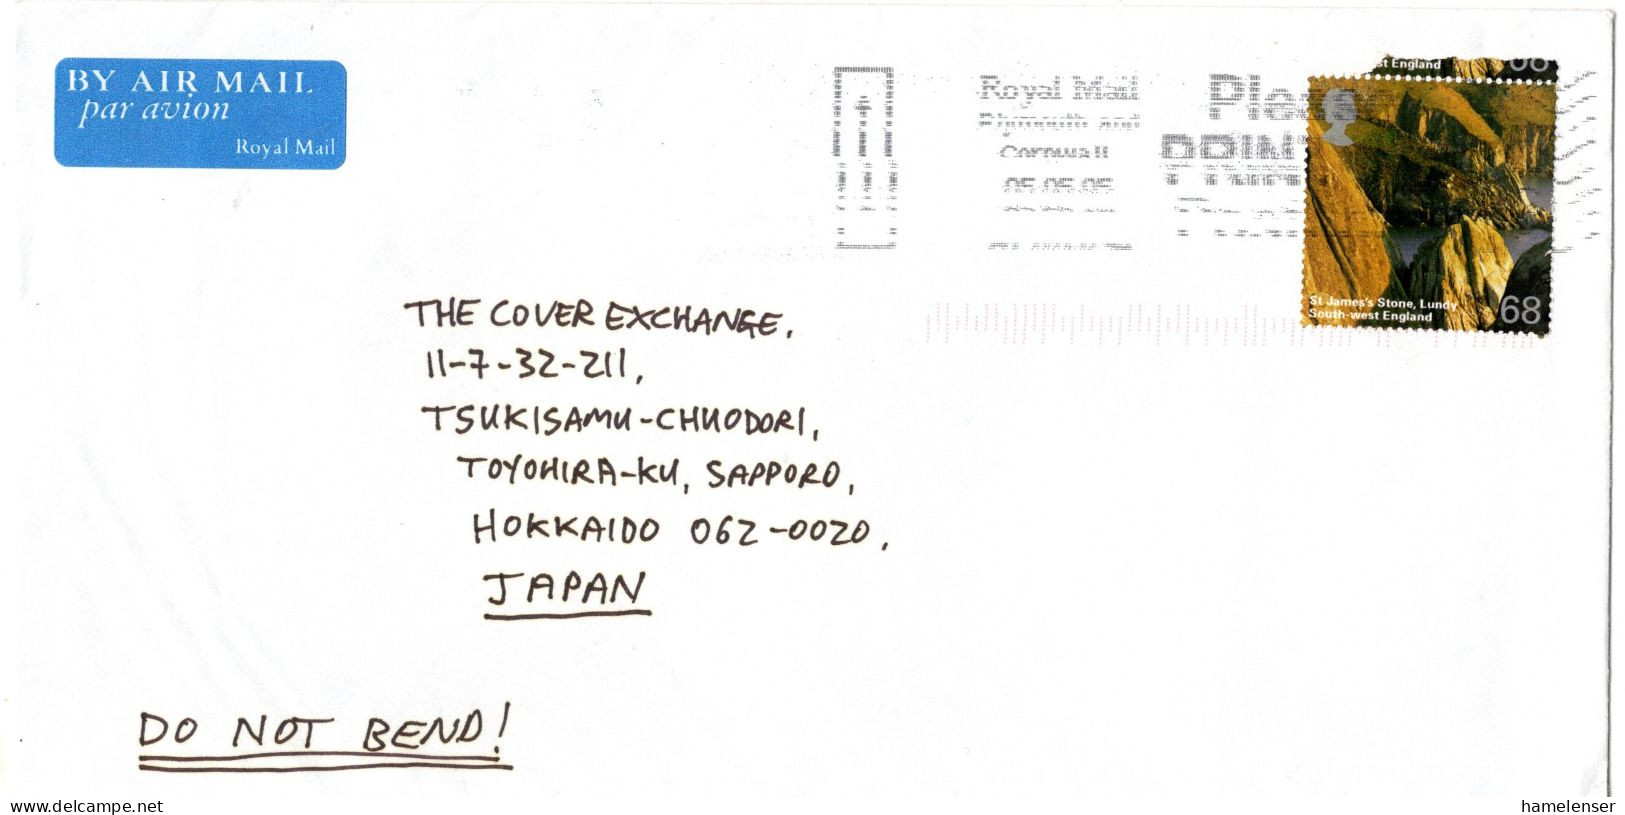 BY AIR MAIL
par avion
Royal Mail
Royal Mail
Cornwall
st England
68
St James's Stone, Lundy
South-west England
68
THE COVER EXCHANGE,
11-7-32-211,
TSUKISAMU-CHUODORI,
TOYOHIRA-KU, SAPPORO,
HOKKAIDO 062-0020,
JAPAN
DO NOT BEND!
www.delcampe.net
hamelenser